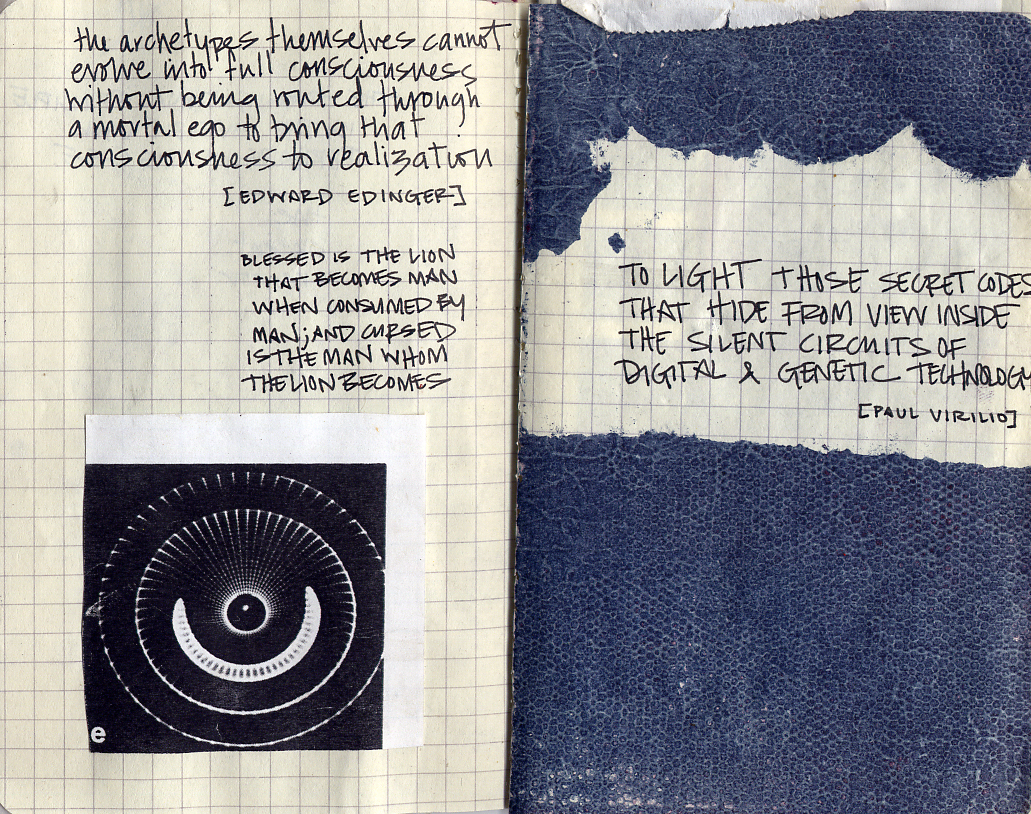 the archetypes themselves cannot
evolve into full consciousness
without being routed through
a mortal ego to bring that
consciousness to realization
[EDWARD EDINGER]
BLESSED IS THE LION
THAT BECOMES MAN
WHEN CONSUMED BY
MAN; AND CURSED
IS THE MAN WHOM
THE LION BECOMES
e
TO LIGHT THOSE SECRET CODES
THAT HIDE FROM VIEW INSIDE
THE SILENT CIRCUITS OF
DIGITAL & GENETIC TECHNOLOGY
[PAUL VIRILIO]